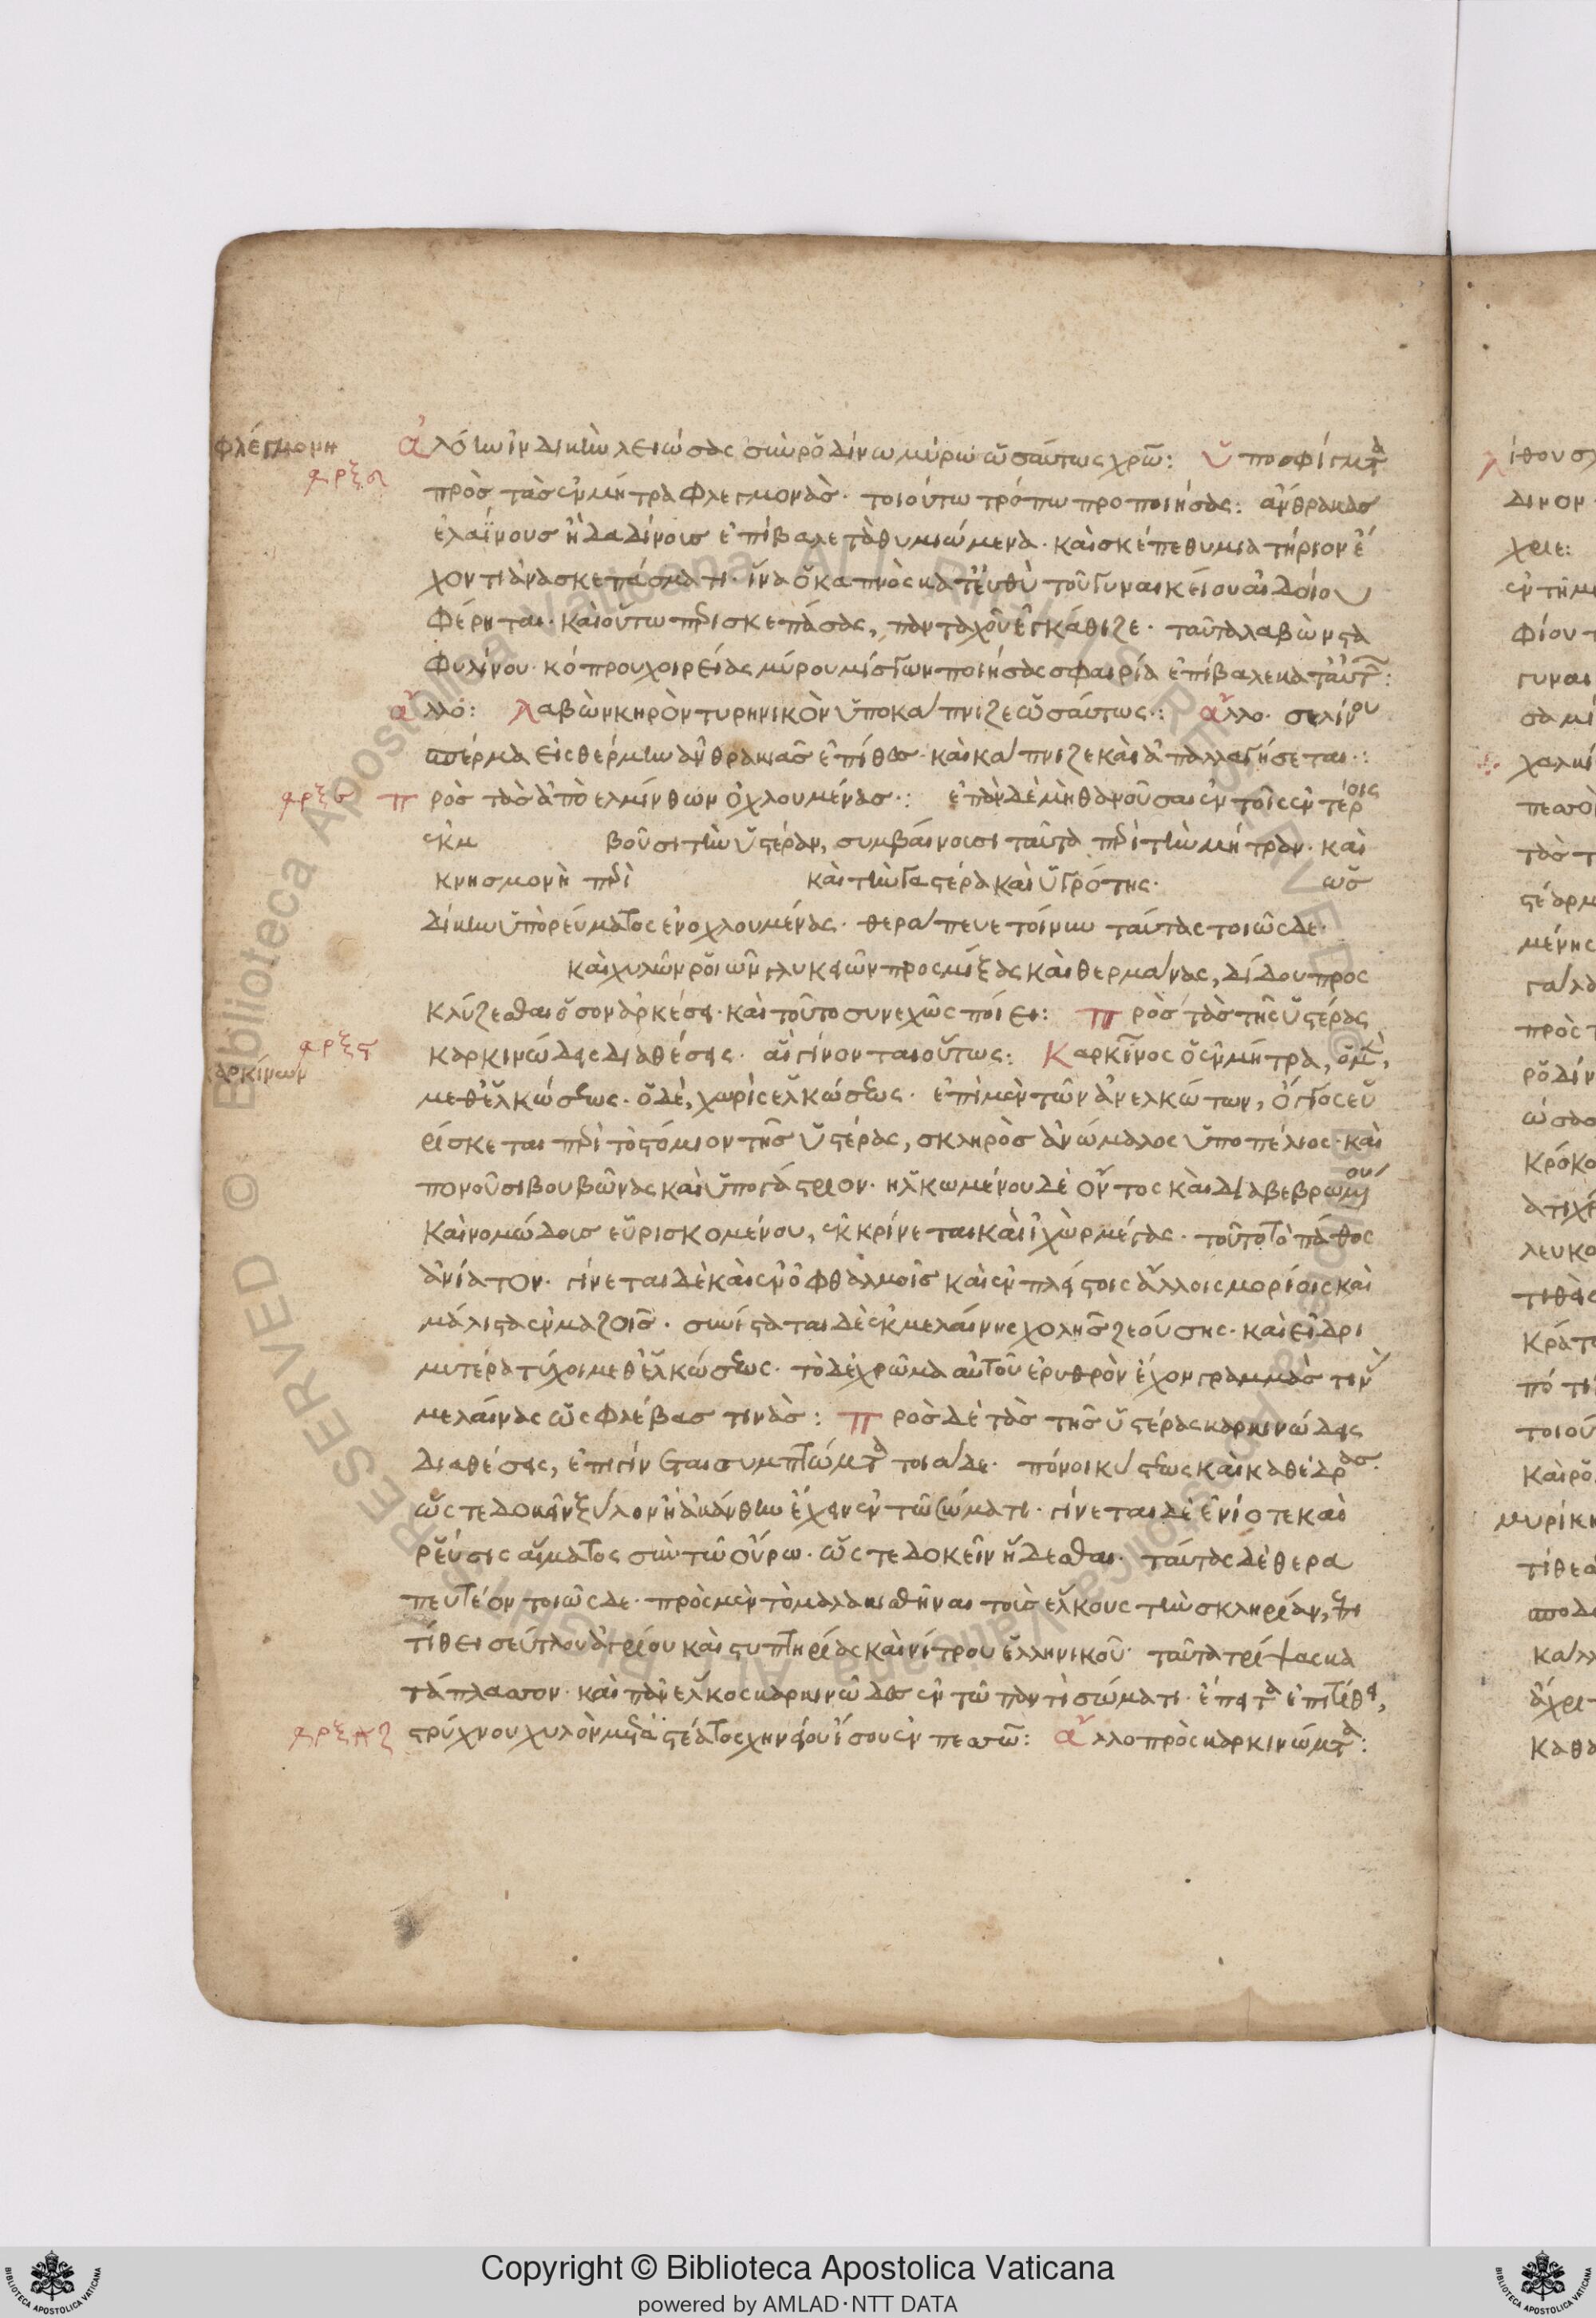 φλέγμονη
ἀλόην ἰνδικὴν λειώσας σὺν ῥοδίνω μύρω ὡσαύτως χρῶ: ὑποσφίγματα
πρὸς τὰς ἐν μήτρα φλεγμονὰς· τοιούτω τρόπω προποιήσας: ἄνθρακας
ἐλαΐνους ἢ δαδίνους ἐπίβαλε τὰ θυμιώμενα· καὶ σκέπε θυμιατήριον ἔ
χοντι ἀνασκεπάσματι· ἵνα ὁ καπνὸς κατευθὺ τοῦ γυναικείου αἰδοίου
φέρηται· καὶ οὕτω περισκεπάσας, πανταχοῦ ἐγκάθιζε· ταῦτα λαβὼν στα
φυλίνου· κόπρου χοιρείας μύρου μίσγων ποιήσας σφαιρία ἐπίβαλε κατ αὐτ:
ἄλλο: λαβὼν κηρὸν τυρηνικὸν ὑποκάπνιζε ὡσαύτως: ἄλλο· σελίνου
σπέρμα εἰς θέρμην ἄνθρακας ἐπίθες· καὶ κάπνιζε καὶ ἀπαλλαγήσεται:
πρὸς τὰς ἀπὸ ελμίνθων ὀχλουμένας: ἐπὰν δὲ μὴ θανοῦσαι ἐν τοῖς ἐντέροις
ἐκμ βοῦσι τὴν ὑστέραν, συμβαίνουσι ταῦτα περὶ τὴν μήτραν· καὶ
κνησμονὴ περὶ καὶ τὴν γαστέρα καὶ ὑγρότης· ὡς
δίκην ὑπὸ ρεύματος ἐνοχλουμένας· θεράπευε τοίνυν ταύτας τοιῶσδε·
καὶ χυλὸν ῥοιῶν γλυκειῶν προσμίξας καὶ θερμάνας, δίδου προς
κλύζεσθαι ὅσον ἀρκέσει· καὶ τοῦτο συνεχῶς ποίει: πρὸς τὰς τῆς ὑστέρας
καρκίνων
καρκινώδεις διαθέσεις· αἳ γίνονται οὕτως: Καρκῖνος ὁ ἐν μήτρα, ὁ μὲν,
μεθ ἑλκώσεως· ὁ δὲ, χωρὶς ἑλκώσεως· ἐπὶ μὲν τῶν ἀνελκώτων, ὄγκος εὑ
ρίσκεται περὶ τὸ στόμιον τῆς ὑστέρας, σκληρὸς ἀνώμαλος ὑποπέλιος· καὶ
πονοῦσι βουβῶνας καὶ ὑπογάστριον· ἡλκωμένου δὲ ὄντος καὶ διαβεβρωμένου
καὶ νομώδους εὑρισκομένου, ἐκκρίνεται καὶ ἰχὼρ μέγας· τοῦτο τὸ πάθος
ἀνίατον· γίνεται δὲ καὶ ἐν ὀφθαλμοῖς καὶ ἐν πλείστοις ἄλλοις μορίοις καὶ
μάλιστα ἐν μαζοῖς· συνίσταται δὲ ἐκ μελαίνης χολῆς ζεούσης· καὶ εἰ δρι
μυτέρα τύχοι μεθ ἑλκώσεως· τὸ δὲ χρῶμα αὐτοῦ ἐρυθρὸν ἔχον γραμμὰς τινὰς
μελαίνας ὡς φλέβας τινὰς: πρὸς δὲ τὰς τῆς ὑστέρας καρκινώδεις
διαθέσεις, ἐπιγίνεται συμπτώματα τοιάδε· πόνοι κύστεως καὶ καθέδρας·
ὥστε δοκεῖν ξύλον ἢ ἀκάνθην ἔχειν ἐν τῶ σώματι· γίνεται δὲ ἐνίοτε καὶ
ῥεύσις αἵματος σὺν τῶ οὔρω· ὥστε δοκεῖν ἥδεσθαι· ταύτας δὲ θερα
πευτέον τοιῶσδε· πρὸς μὲν τὸ μαλακισθῆναι τοῖς ἕλκους τὴν σκληρίαν, ἐπι
τίθει σεύτλου ἀγρίου καὶ στυπτηρίας καὶ νίτρου ἑλληνικοῦ· ταῦτα τρίψας κα
τάπλασσον· καὶ πᾶν ἕλκος καρκινῶδες ἐν τῶ παντὶ σώματι· ἔπειτα ἐπιτίθει,
στρύχνου χυλὸν μετὰ στέατος χηνείου ἴσου ἐν πεσσῶ: ἄλλο πρὸς καρκινώματα: